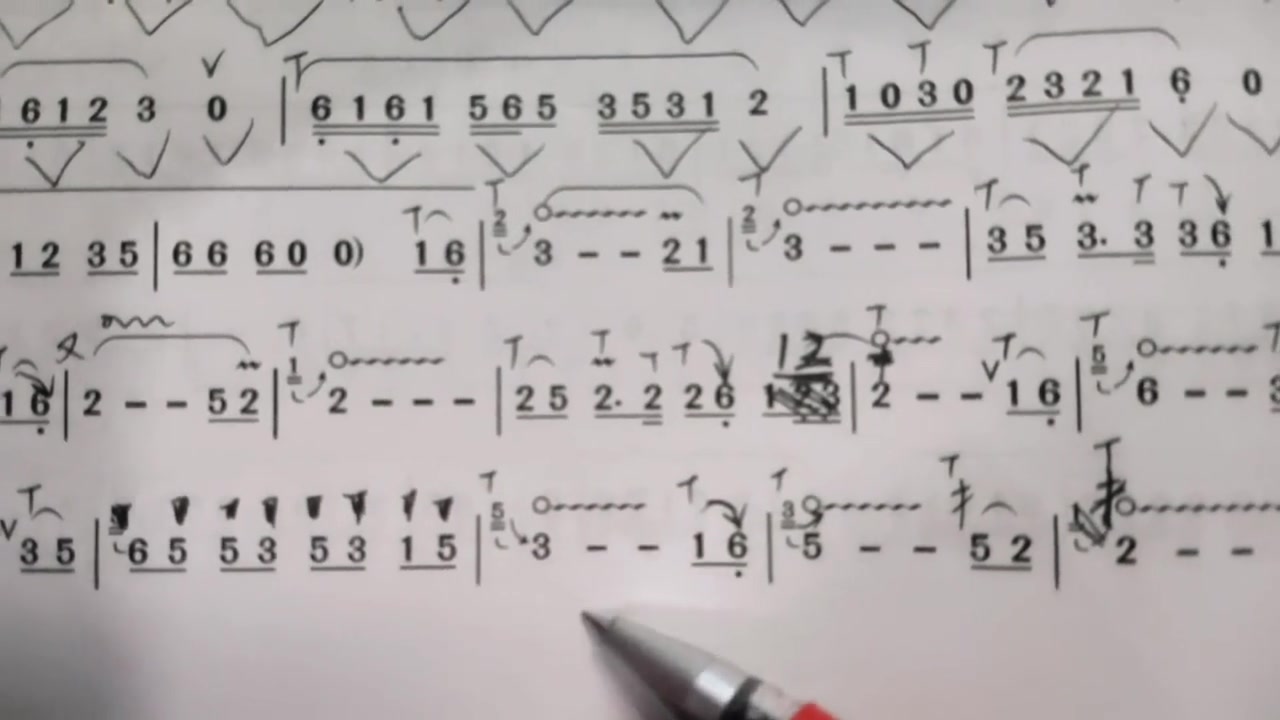 6 1 2 3 0 | 6 1 6 1 5 6 5 3 5 3 1 2 | 1 0 3 0 2 3 2 1 6 0
1 2 3 5 | 6 6 6 0 0) 1 6 | 2 3 - - 2 1 | 2 3 - - - | 3 5 3. 3 3 6 1
1 6 | 2 - - 5 2 | 1 2 - - - | 2 5 2. 2 2 6 12 | 2 - - 1 6 | 5 6 - -
3 5 | 6 5 5 3 5 3 1 5 | 5 3 - - 1 6 | 3 5 - - 5 2 | 2 - -